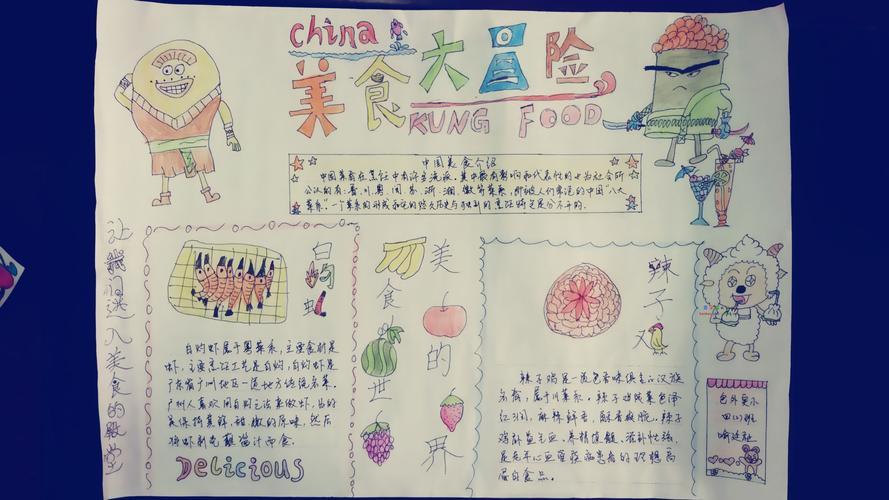 china
美食大冒险
KUNG FOOD
中国美食介绍
中国菜肴在烹饪中有许多流派。其中最有影响和代表性的也为社会所
公认的有:鲁、川、粤、闽、苏、浙、湘、徽等菜系,即被人们常说的中国"八大
菜系"。一个菜系的形成和它的悠久历史与独到的烹饪特色是分不开的。
让我们进入美食的殿堂
白灼虾
白灼虾属于粤菜系,主要食材是
虾,主要烹饪工艺是白灼,白灼虾是
广东省广州地区一道地方传统名菜。
广州人喜欢用白灼之法来做虾,为的
是保持其鲜、甜、嫩的原味,然后
将虾剥壳蘸酱汁而食。
Delicious
美食的世界
辣子鸡
辣子鸡是一道色香味俱全的汉族
名肴,属于川菜系。辣子鸡成菜色泽
红润,麻辣鲜香,酥香爽脆。辣子
鸡补益气血、养精填髓、滋补性强,
是老年心血管疾病患者的理想高
蛋白食品。
四(1)班